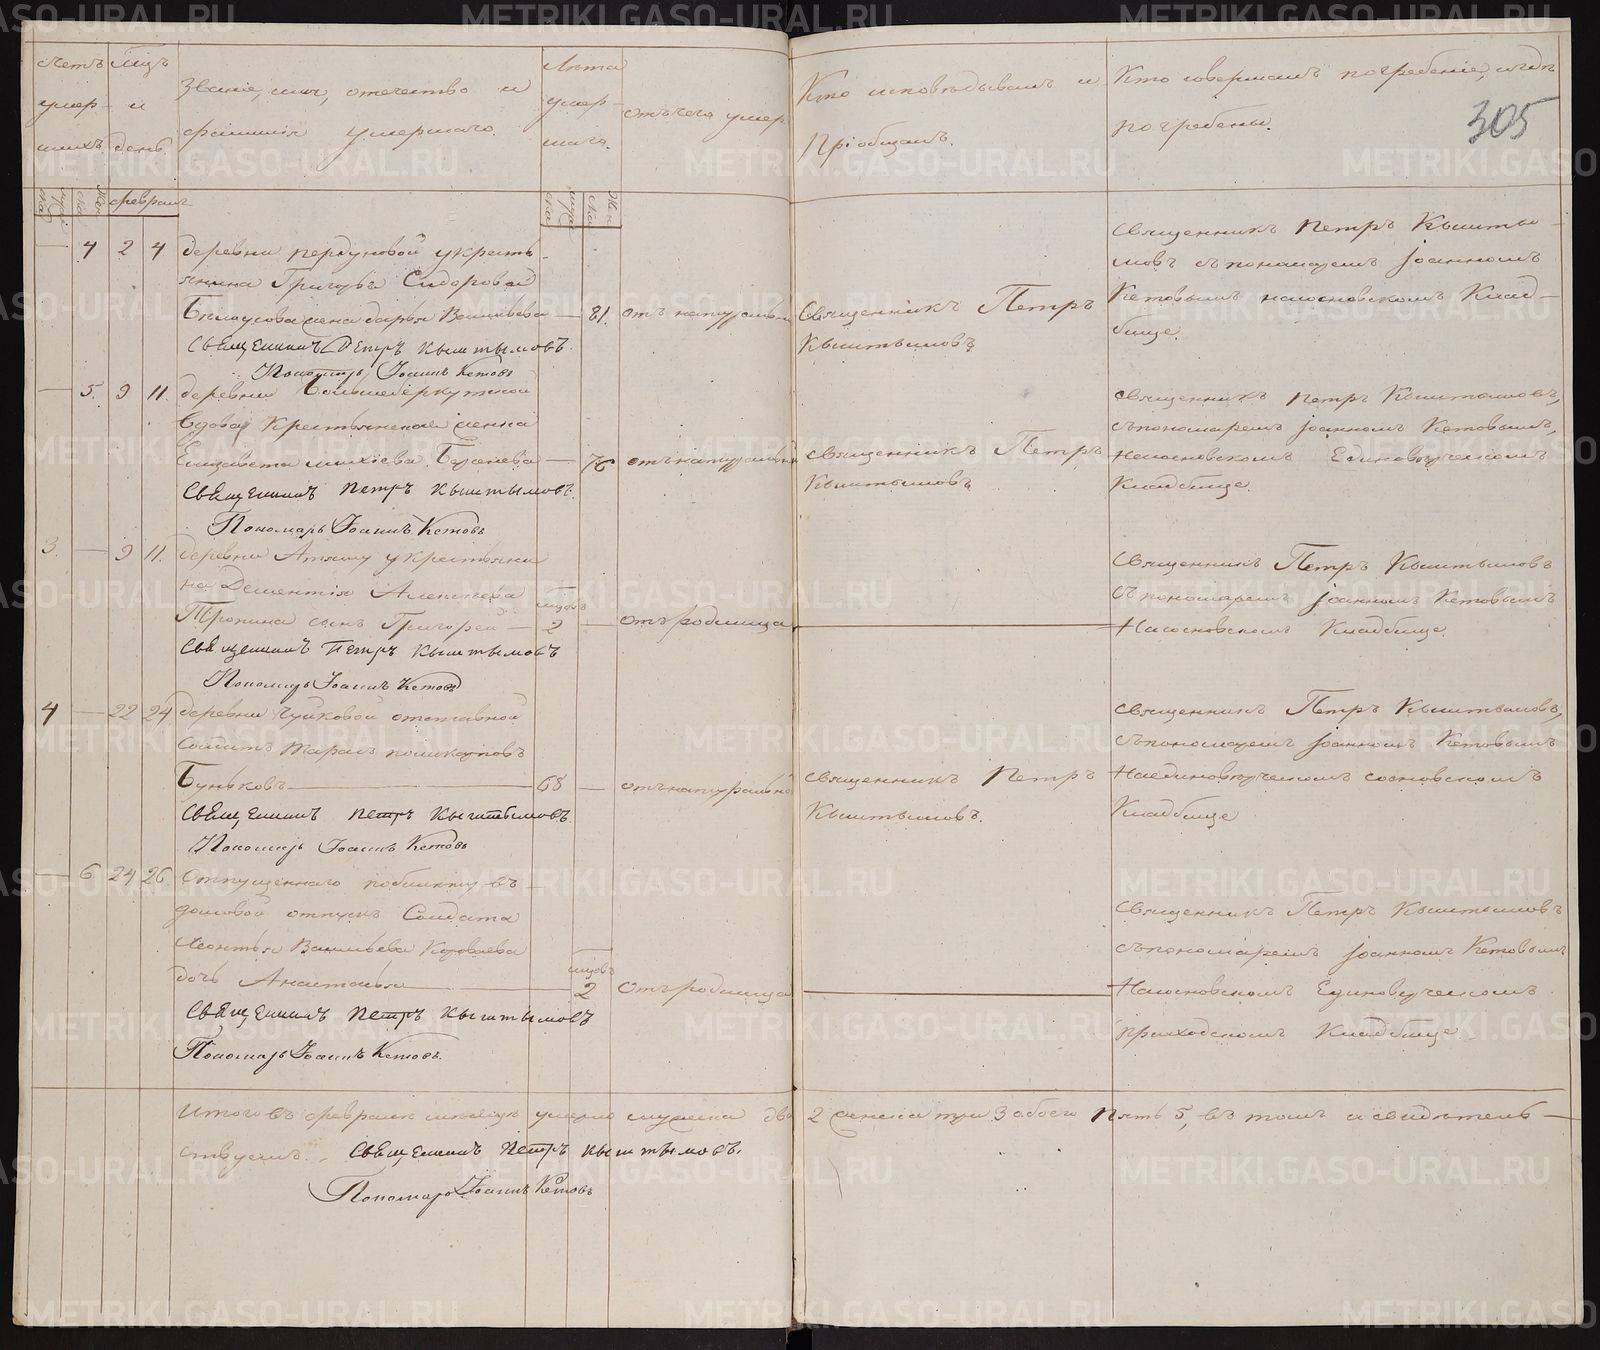 Счетъ умер- шихъ.
Мѣсяцъ и день
Званіе, имя, отчество и
фамилія умершаго.
Лѣта
умер-
шаго.
отъ чего умеръ
Кто исповѣдывалъ и
Пріобщалъ.
Кто совершалъ погребеніе, и гдѣ
погребены.
305
февраль
4 2 4
деревни Пердуновой у кресть-
янина Григорья Сидорова
Бѣлоусова жена Дарья Васильева — 81. отъ натуральной
Священникъ Петръ Кыштымовъ.
Пономарь Іоаннъ Кетовъ
Священникъ Петръ
Кыштымовъ
Священникъ Петръ Кышты-
мовъ съ пономаремъ Іоанномъ
Кетовымъ на сосновскомъ Клад-
бище.
5. 9 11.
деревни
вдова Крестьянская жена
Елизавета — 76 отъ натуральной
Священникъ Петръ Кыштымовъ.
Пономарь Іоаннъ Кетовъ
Священникъ Петръ
Кыштымовъ
Священникъ Петръ Кыштымовъ,
съ пономаремъ Іоанномъ Кетовымъ,
На сосновскомъ Единовѣрческомъ
Кладбище.
3. — 9 11.
деревни у крестьяни
на Дементія Алексѣева
Тропина сынъ Григорей — мцовъ 2 — отъ родимца
Священникъ Петръ Кыштымовъ
Пономарь Іоаннъ Кетовъ
Священникъ Петръ Кыштымовъ
съ пономаремъ Іоанномъ Кетовымъ
На сосновскомъ Кладбище.
4 — 22 24
деревни Чуйковой отставной
Солдатъ Тарасъ
Буньковъ — 68 — отъ натуральной
Священникъ Петръ Кыштымовъ.
Пономарь Іоаннъ Кетовъ
Священникъ Петръ
Кыштымовъ.
Священникъ Петръ Кыштымовъ,
съ пономаремъ Іоанномъ Кетовымъ
На единовѣрческомъ сосновскомъ
Кладбище
6 24 26
Отпущеннаго по билету въ
домовой отпускъ Солдата
Леонтья Васильева
дочь Анастасья — мцовъ 2 отъ родимца
Священникъ Петръ Кыштымовъ
Пономарь Іоаннъ Кетовъ.
Священникъ Петръ Кыштымовъ
съ пономаремъ Іоанномъ Кетовымъ
На сосновскомъ Единовѣрческомъ
приходскомъ Кладбище
Итого въ февралѣ мѣсяцѣ умерло мужеска два 2 женска три 3 обоего пять 5, въ томъ и свидѣтель-
ствуемъ. Священникъ Петръ Кыштымовъ.
Пономарь Іоаннъ Кетовъ
METRIKI.GASO-URAL.RU